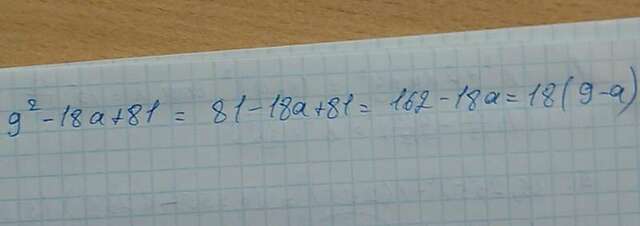 9² - 18a + 81 = 81 - 18a + 81 = 162 - 18a = 18(9 - a)